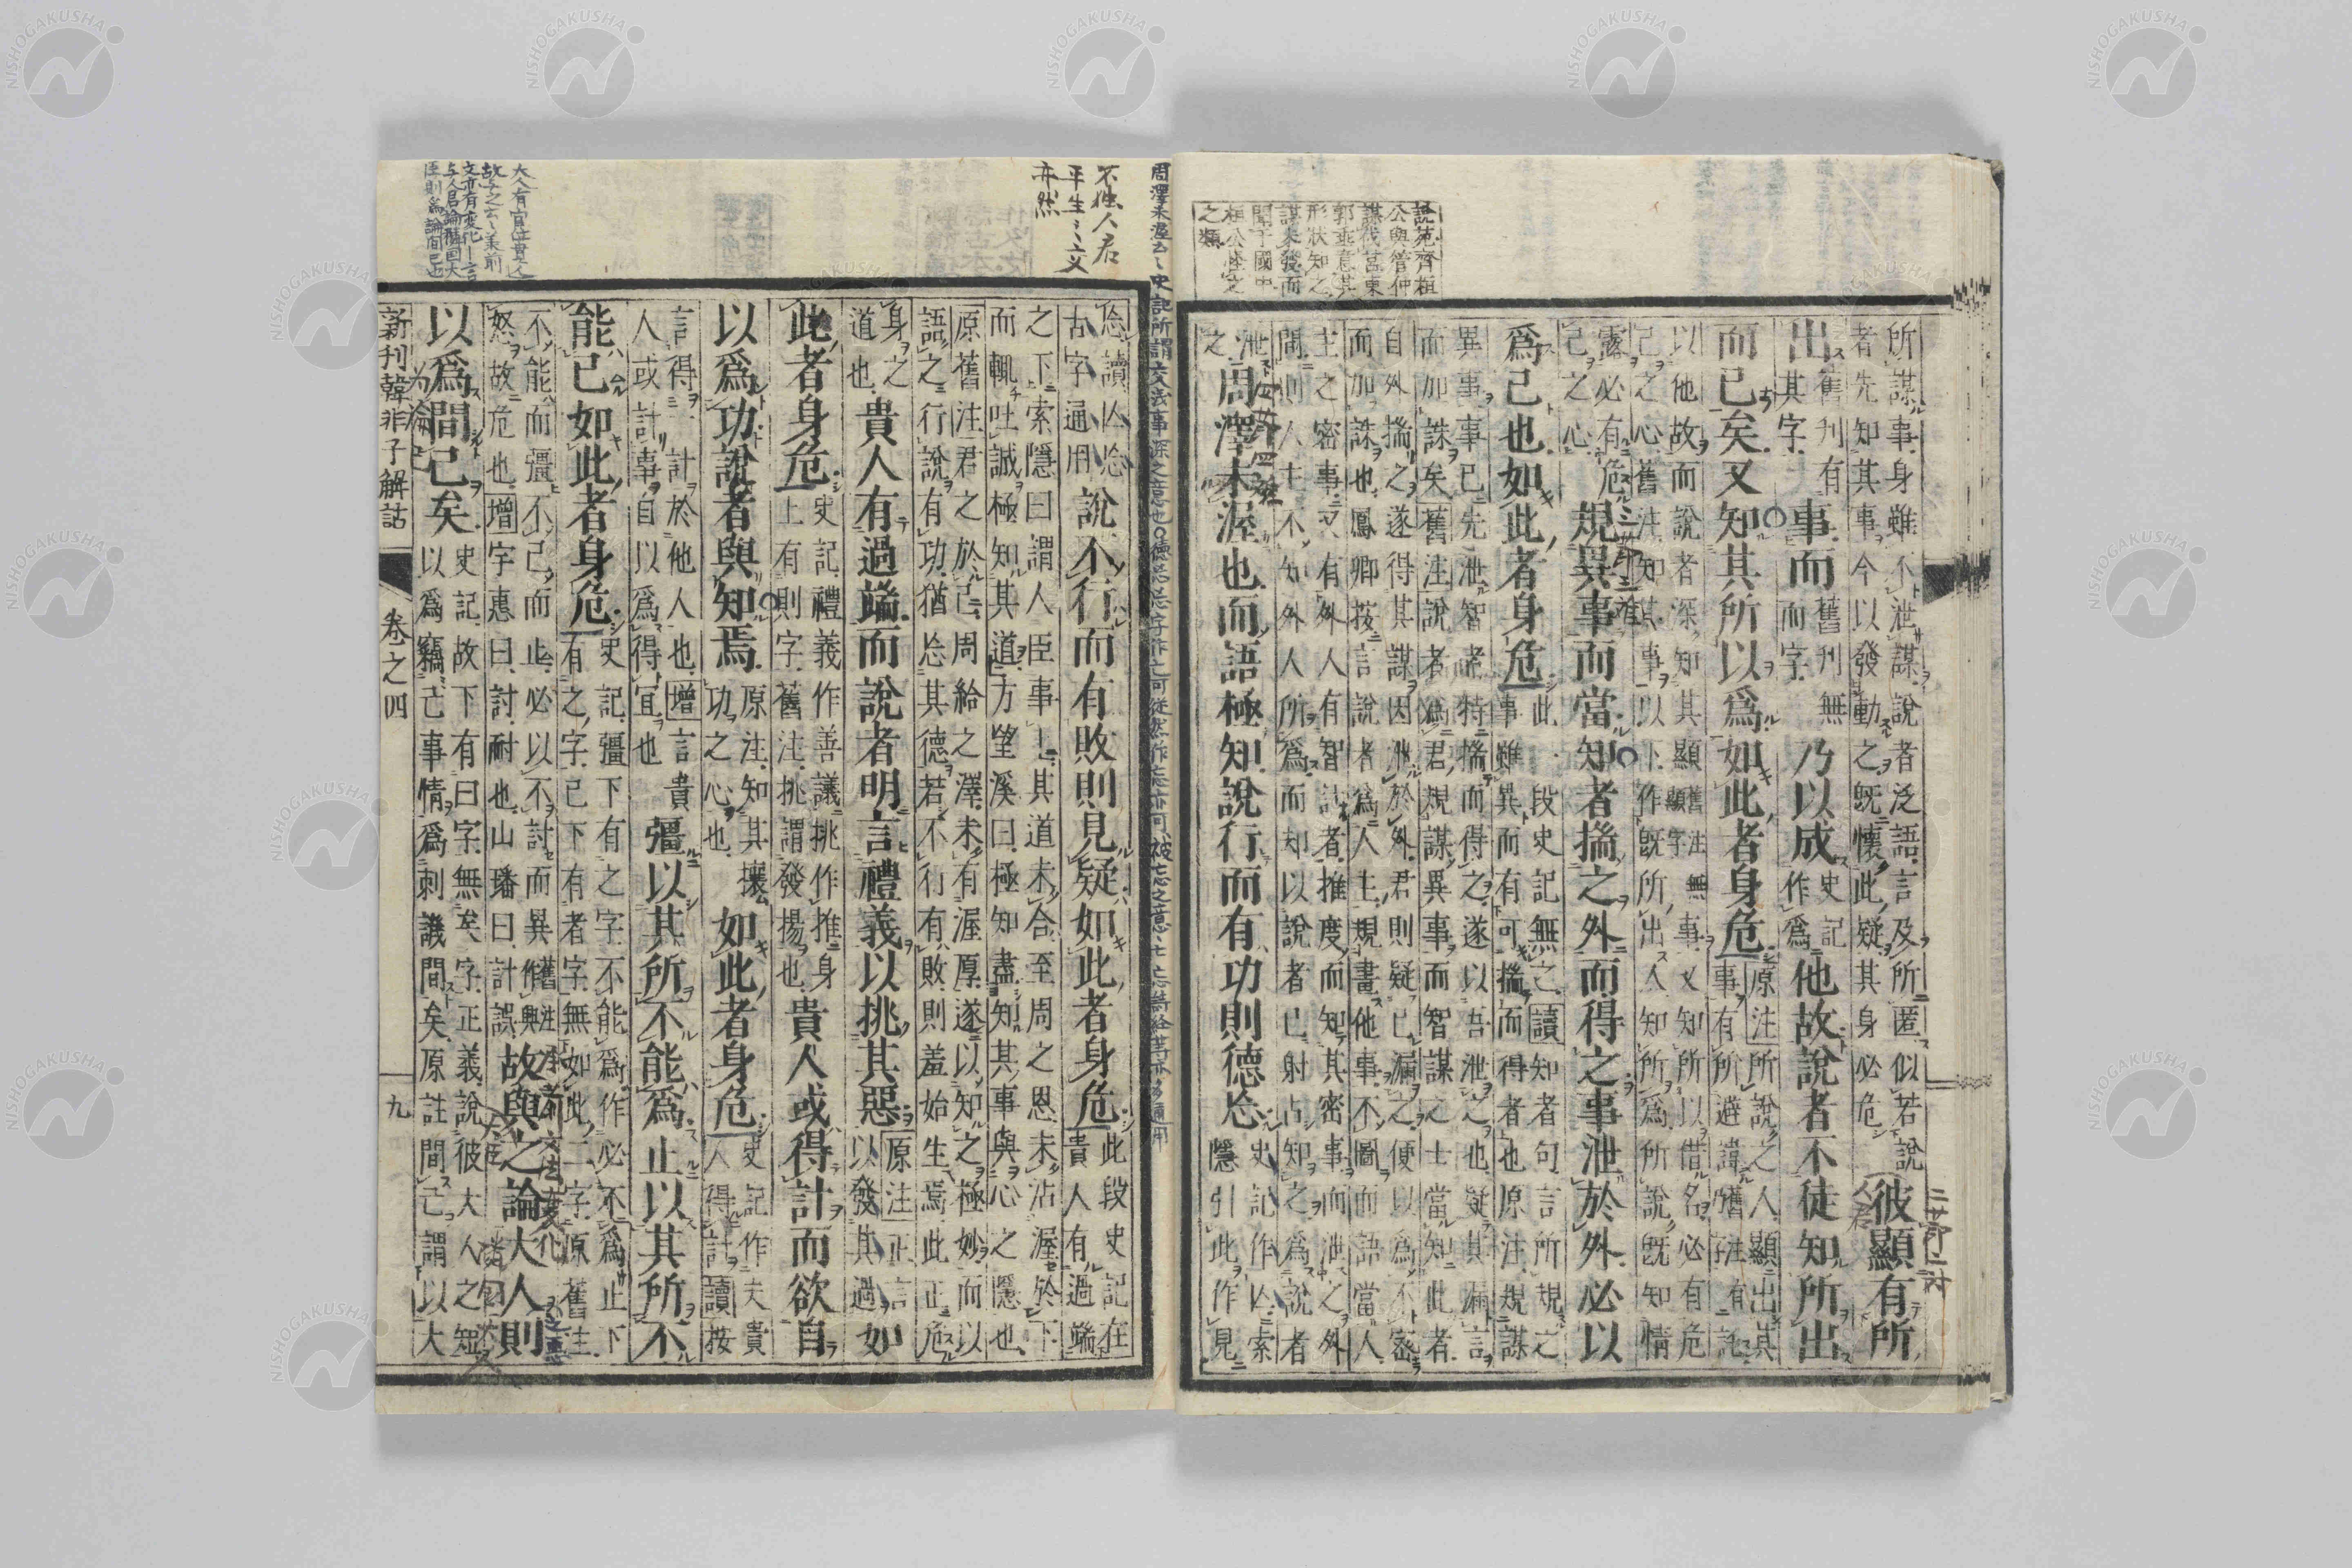 說苑齊桓
公與管仲
謀伐莒東
郭垂意其
形狀知之
謀未發而
聞于國中
桓公怪之
之類
所謀事身雖不泄謀說者泛語言及所匿似若說
者先知其事今以發動之既懷此疑其身必危
彼顯有所
出舊刊有其字事而舊刊無而字乃以成史記作爲他故說者不徒知所出
而已矣又知其所以爲如此者身危原注所說之人顯出其
事有所避諱舊注有託
以他故而說者深知其顯舊注無顯字事又知所以借名必有危
己之心舊注知其事以下作既所出人知所爲所說既知情
露必有危
己之心
規異事而當知者揣之外而得之事泄於外必以
爲己也如此者身危此一段史記無之讀知者句言所規之
事雖異而有可揣而得者也原注規謀
異事事已先泄智者特揣而得之遂以吾泄之也疑其漏言
而加誅矣舊注說者爲君規謀異事而智謀之士當知此者
自外揣之遂得其謀因泄於外君則疑己漏之便以爲不密
而加誅也鳳卿按言說者爲人主規畫他事不圖而語當人
主之密事又有外人有智計者推度而知其密事而泄之外
間則人主不知外人所爲而却以說者已射占知之爲說者
泄
之
周澤未渥也而語極知說行而有功則德忘史記作亾索
隱引此作見
不独人君
平生之文
亦然
忘讀亾忘
古字通用
說不行而有敗則見疑如此者身危此段史記在
貴人有過端
之下索隱曰謂人臣事上其道未合至周之恩未沾渥於下
而輒吐誠極知其道方望溪曰極知盡知其事與心之隱也
原舊注君之於己周給之澤未有渥厚遂以知之極妙而以
語之行說有功猶忘其德若不行有敗則羞始生焉此正危
身之
道也
貴人有過端而說者明言禮義以挑其惡原注正言
以發其過
如
此者身危史記禮義作善議挑作推身
上有則字舊注挑謂發揚也
貴人或得計而欲自
以爲功說者與知焉原注知其壞
功之心也
如此者身危史記作夫貴
人得計讀按
言得計於他人也增言貴
人或計事自以爲得宜也
彊以其所不能爲止以其所不
能已如此者身危史記彊下有之字不能爲作必不爲止下
有之字已下有者字無如此二字原舊注
不能而彊不已而止必以不討而異舊注異作與
怒故危也增字惠曰討耐也山璠曰計誤
故與之論大人則
以爲間己矣史記故下有曰字無矣字正義說彼大人之短
以爲竊己事情爲刺譏間矣原註間己謂以大
新刊韓非子解詁
卷之四
九
NISHOGAKUSHA